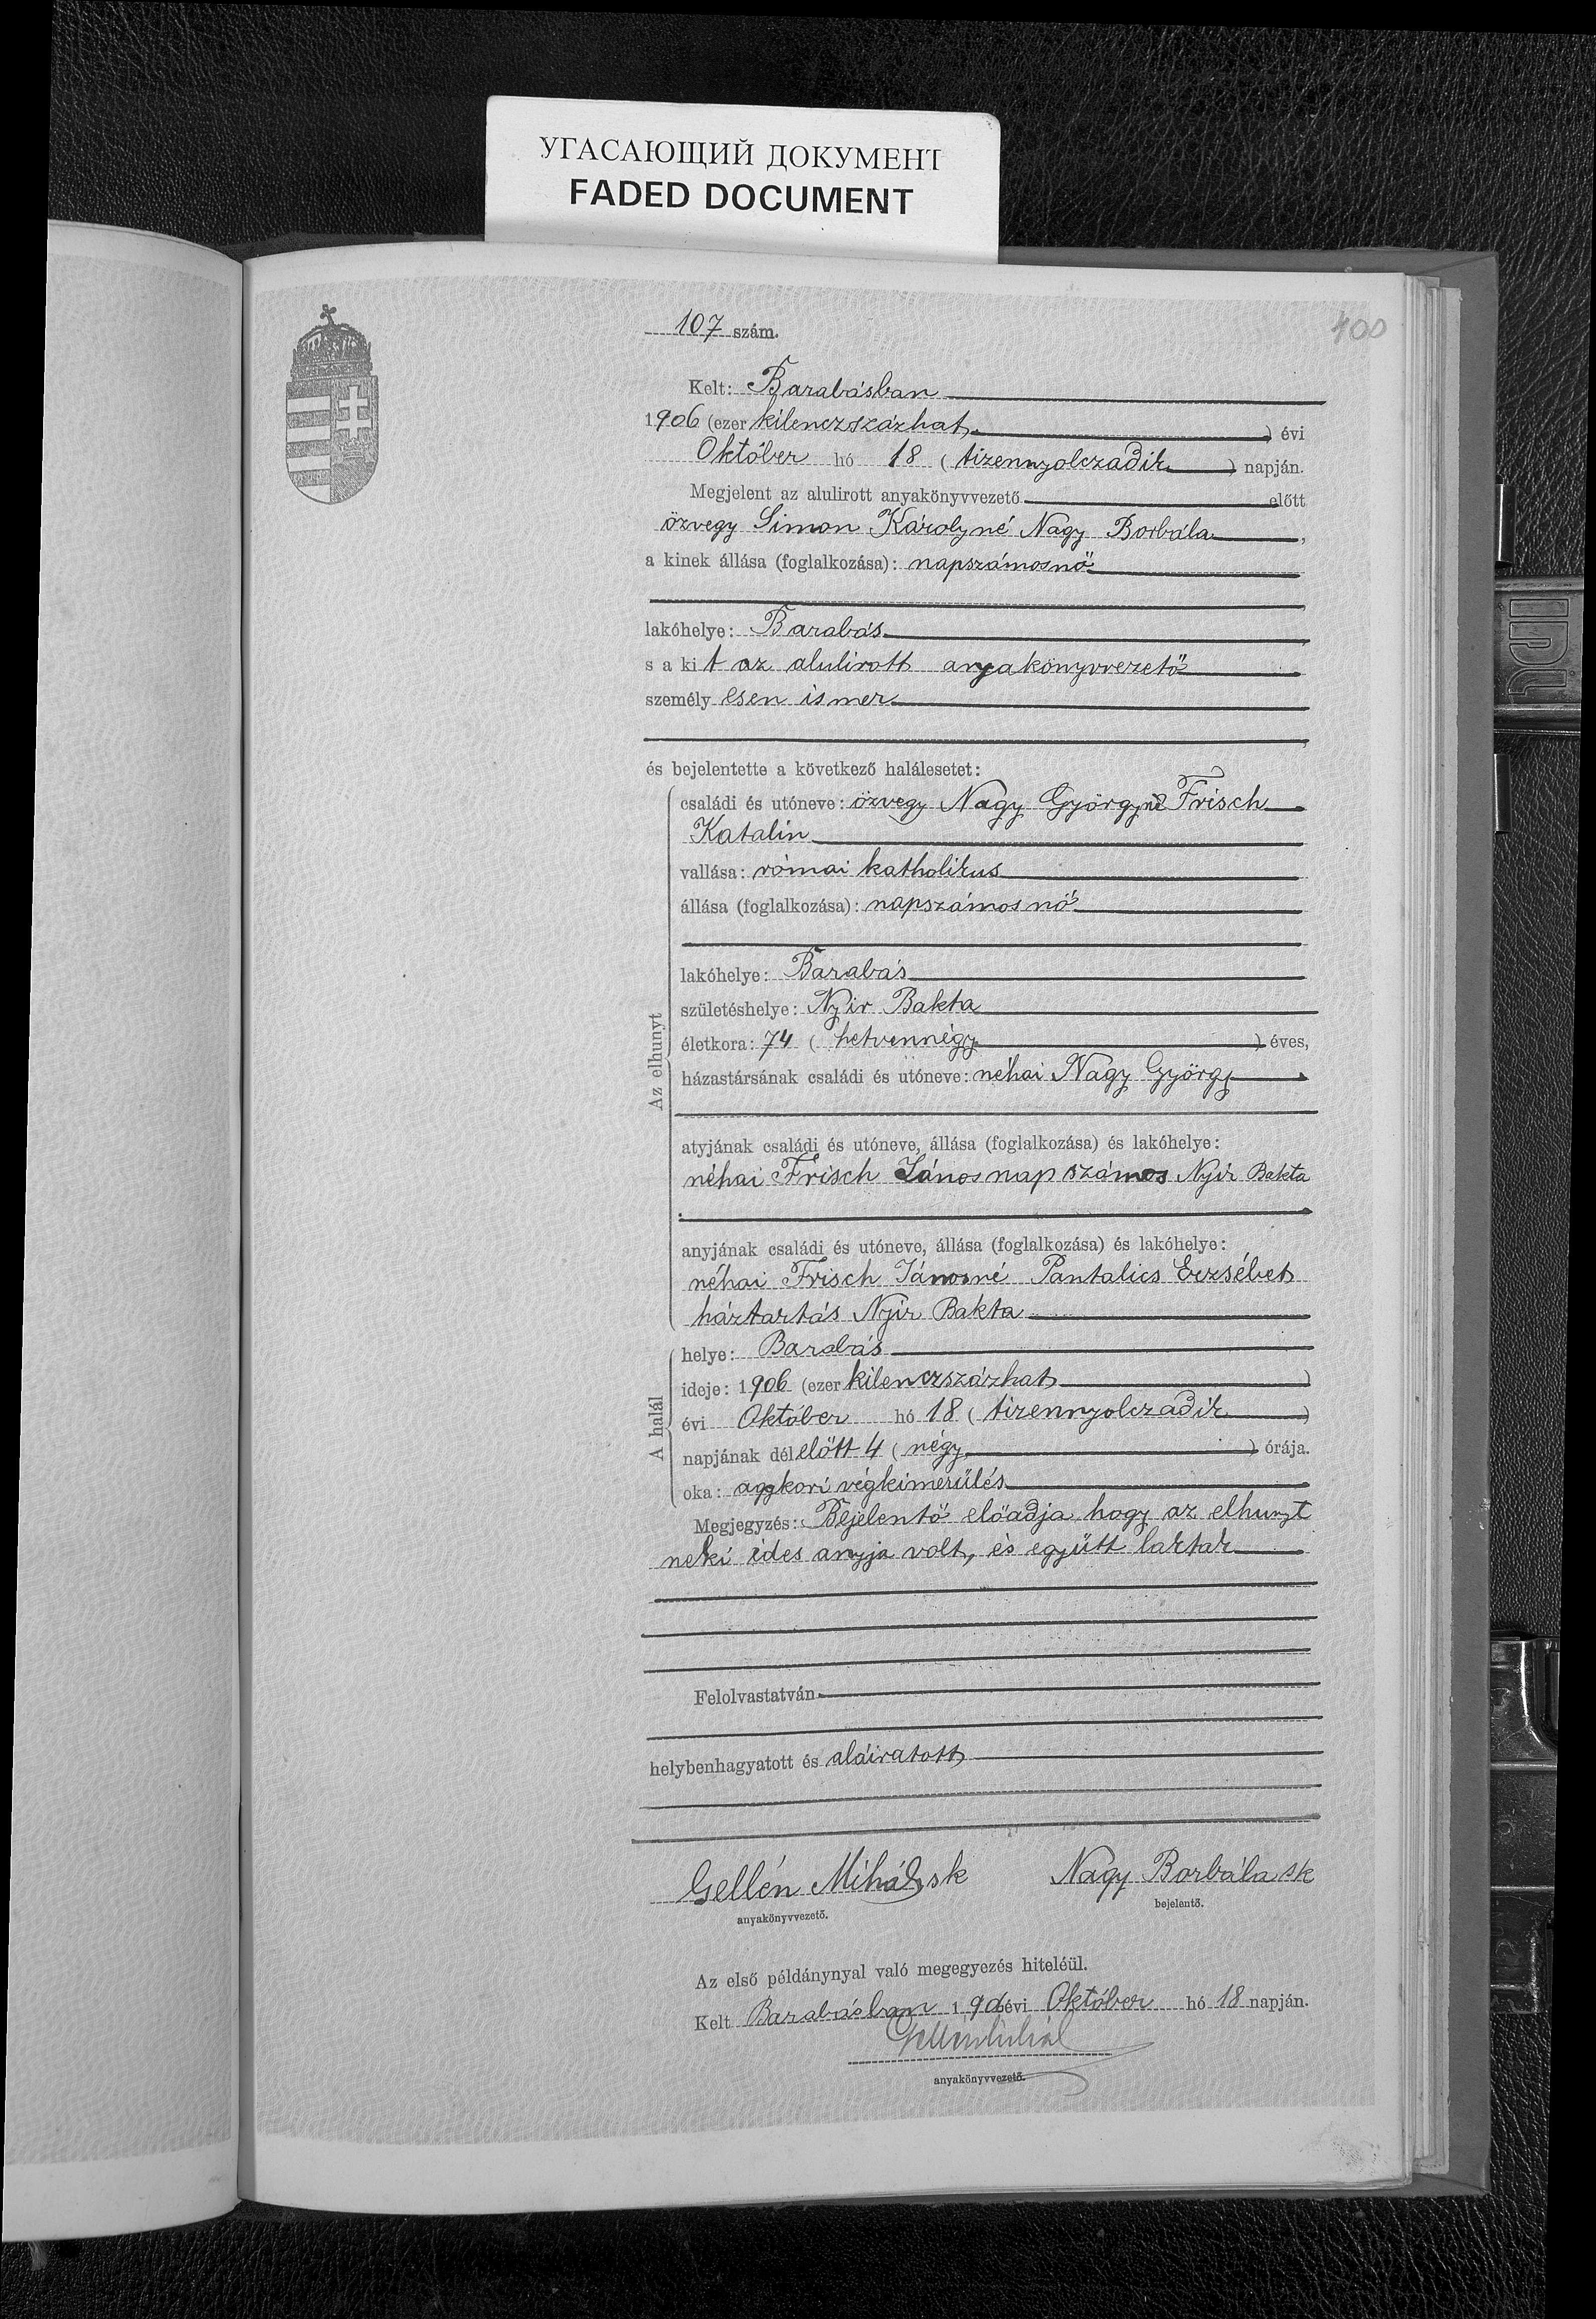 УГАСАЮЩИЙ ДОКУМЕНТ
FADED DOCUMENT
400
107 szám.
Kelt: Barabásban
1906 (ezer kilenczszázhat) évi
Október hó 18 (tizennyolczadik) napján.
Megjelent az alulirott anyakönyvvezető előtt
özvegy Simon Károlyné Nagy Borbála,
a kinek állása (foglalkozása): napszámosnő
lakóhelye: Barabás
s a kit az alulirott anyakönyvvezető
személyesen ismer
és bejelentette a következő halálesetet:
Az elhunyt
családi és utóneve: özvegy Nagy Györgyné Frisch
Katalin
vallása: római katholikus
állása (foglalkozása): napszámosnő
lakóhelye: Barabás
születéshelye: Nyir Bakta
életkora: 74 (hetvennégy) éves,
házastársának családi és utóneve: néhai Nagy György
atyjának családi és utóneve, állása (foglalkozása) és lakóhelye:
néhai Frisch János napszámos Nyir Bakta
anyjának családi és utóneve, állása (foglalkozása) és lakóhelye:
néhai Frisch Jánosné Pantalics Erzsébet
háztartás Nyir Bakta
A halál
helye: Barabás
ideje: 1906 (ezer kilenczszázhat)
évi Október hó 18 (tizennyolczadik)
napjának délelőtt 4 (négy) órája.
oka: aggkori végkimerülés
Megjegyzés: Bejelentő előadja hogy az elhunyt
neki édes anyja volt, és együtt laktak
Felolvastatván
helybenhagyatott és aláiratott
Gellén Mihály sk Nagy Borbála sk
anyakönyvvezető. bejelentő.
Az első példánynyal való megegyezés hiteléül.
Kelt Barabásban 1906 évi Október hó 18 napján.
Gellén Mihál
anyakönyvvezető.